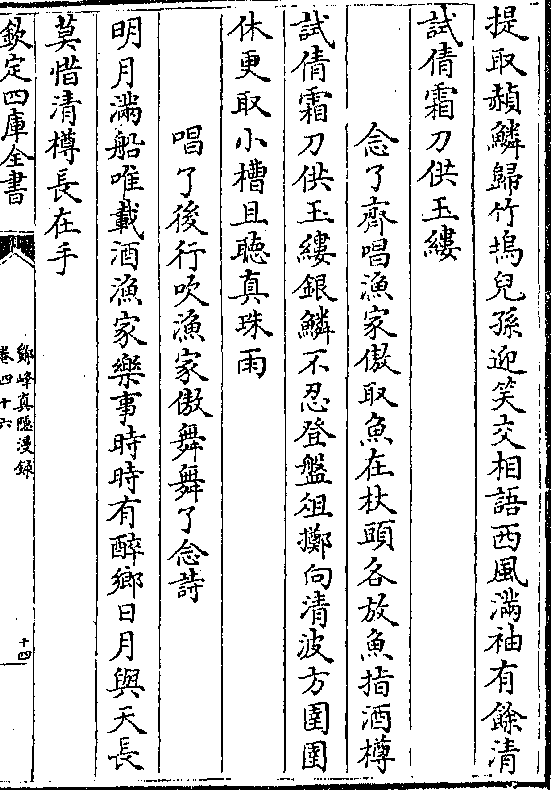 提取赬鱗歸竹塢兒孫迎笑交相語西風滿袖有餘清
試倩霜刀供玉縷
念了齊唱漁家傲取魚在杖頭各放魚指酒樽
試倩霜刀供玉縷銀鱗不忍登盤俎擲向清波方圉圉
休更取小槽且聽真珠雨
唱了後行吹漁家傲舞舞了念詩
明月滿船唯載酒漁家樂事時時有醉鄉日月與天長
莫惜清樽長在手
欽定四庫全書
鄮峰真隱漫録
卷四十六
十四